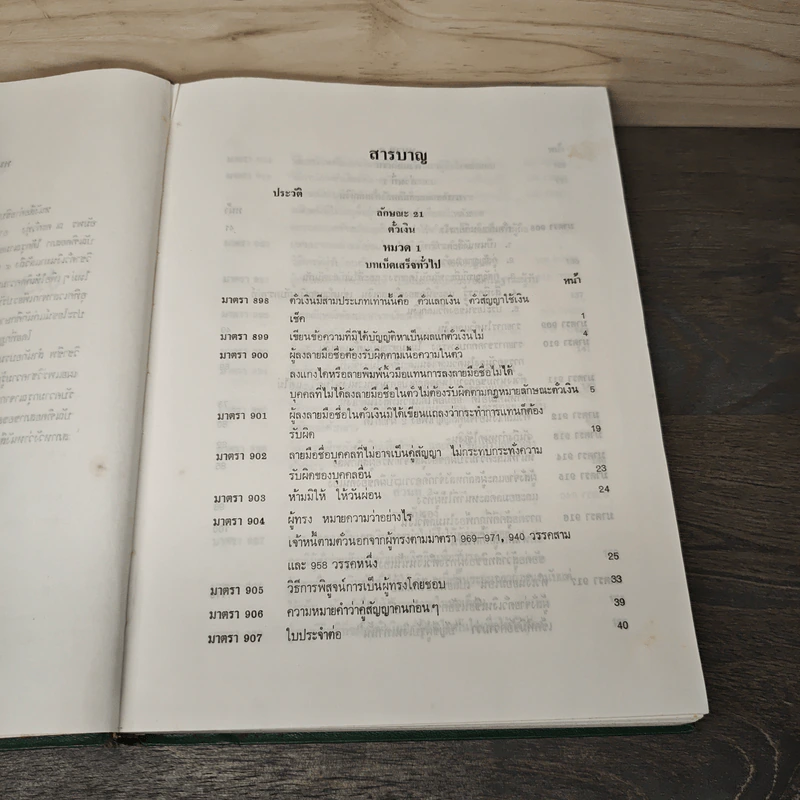 สารบาญ
ประวัติ
ลักษณะ 21
ตั๋วเงิน
หมวด 1
บทเบ็ดเสร็จทั่วไป
หน้า
มาตรา 898 ตั๋วเงินมีสามประเภทเท่านั้นคือ ตั๋วแลกเงิน ตั๋วสัญญาใช้เงิน
เช็ค 1
มาตรา 899 เขียนข้อความที่มิได้บัญญัติหาเป็นผลแก่ตั๋วเงินไม่ 4
มาตรา 900 ผู้ลงลายมือชื่อต้องรับผิดตามเนื้อความในตั๋ว
ลงแกงไดหรือลายพิมพ์นิ้วมือแทนการลงลายมือชื่อไม่ได้
บุคคลที่ไม่ได้ลงลายมือชื่อในตั๋วไม่ต้องรับผิดตามกฎหมายลักษณะตั๋วเงิน 5
มาตรา 901 ผู้ลงลายมือชื่อในตั๋วเงินมิได้เขียนแถลงว่ากระทำการแทนก็ต้อง
รับผิด 19
มาตรา 902 ลายมือชื่อบุคคลที่ไม่อาจเป็นคู่สัญญา ไม่กระทบกระทั่งความ
รับผิดของบุคคลอื่น 23
มาตรา 903 ห้ามมิให้ ให้วันผ่อน 24
มาตรา 904 ผู้ทรง หมายความว่าอย่างไร
เจ้าหนี้ตามตั๋วนอกจากผู้ทรงตามมาตรา 969-971, 940 วรรคสาม
และ 958 วรรคหนึ่ง 25
มาตรา 905 วิธีการพิสูจน์การเป็นผู้ทรงโดยชอบ 33
มาตรา 906 ความหมายคำว่าคู่สัญญาคนก่อน ๆ 39
มาตรา 907 ใบประจำต่อ 40